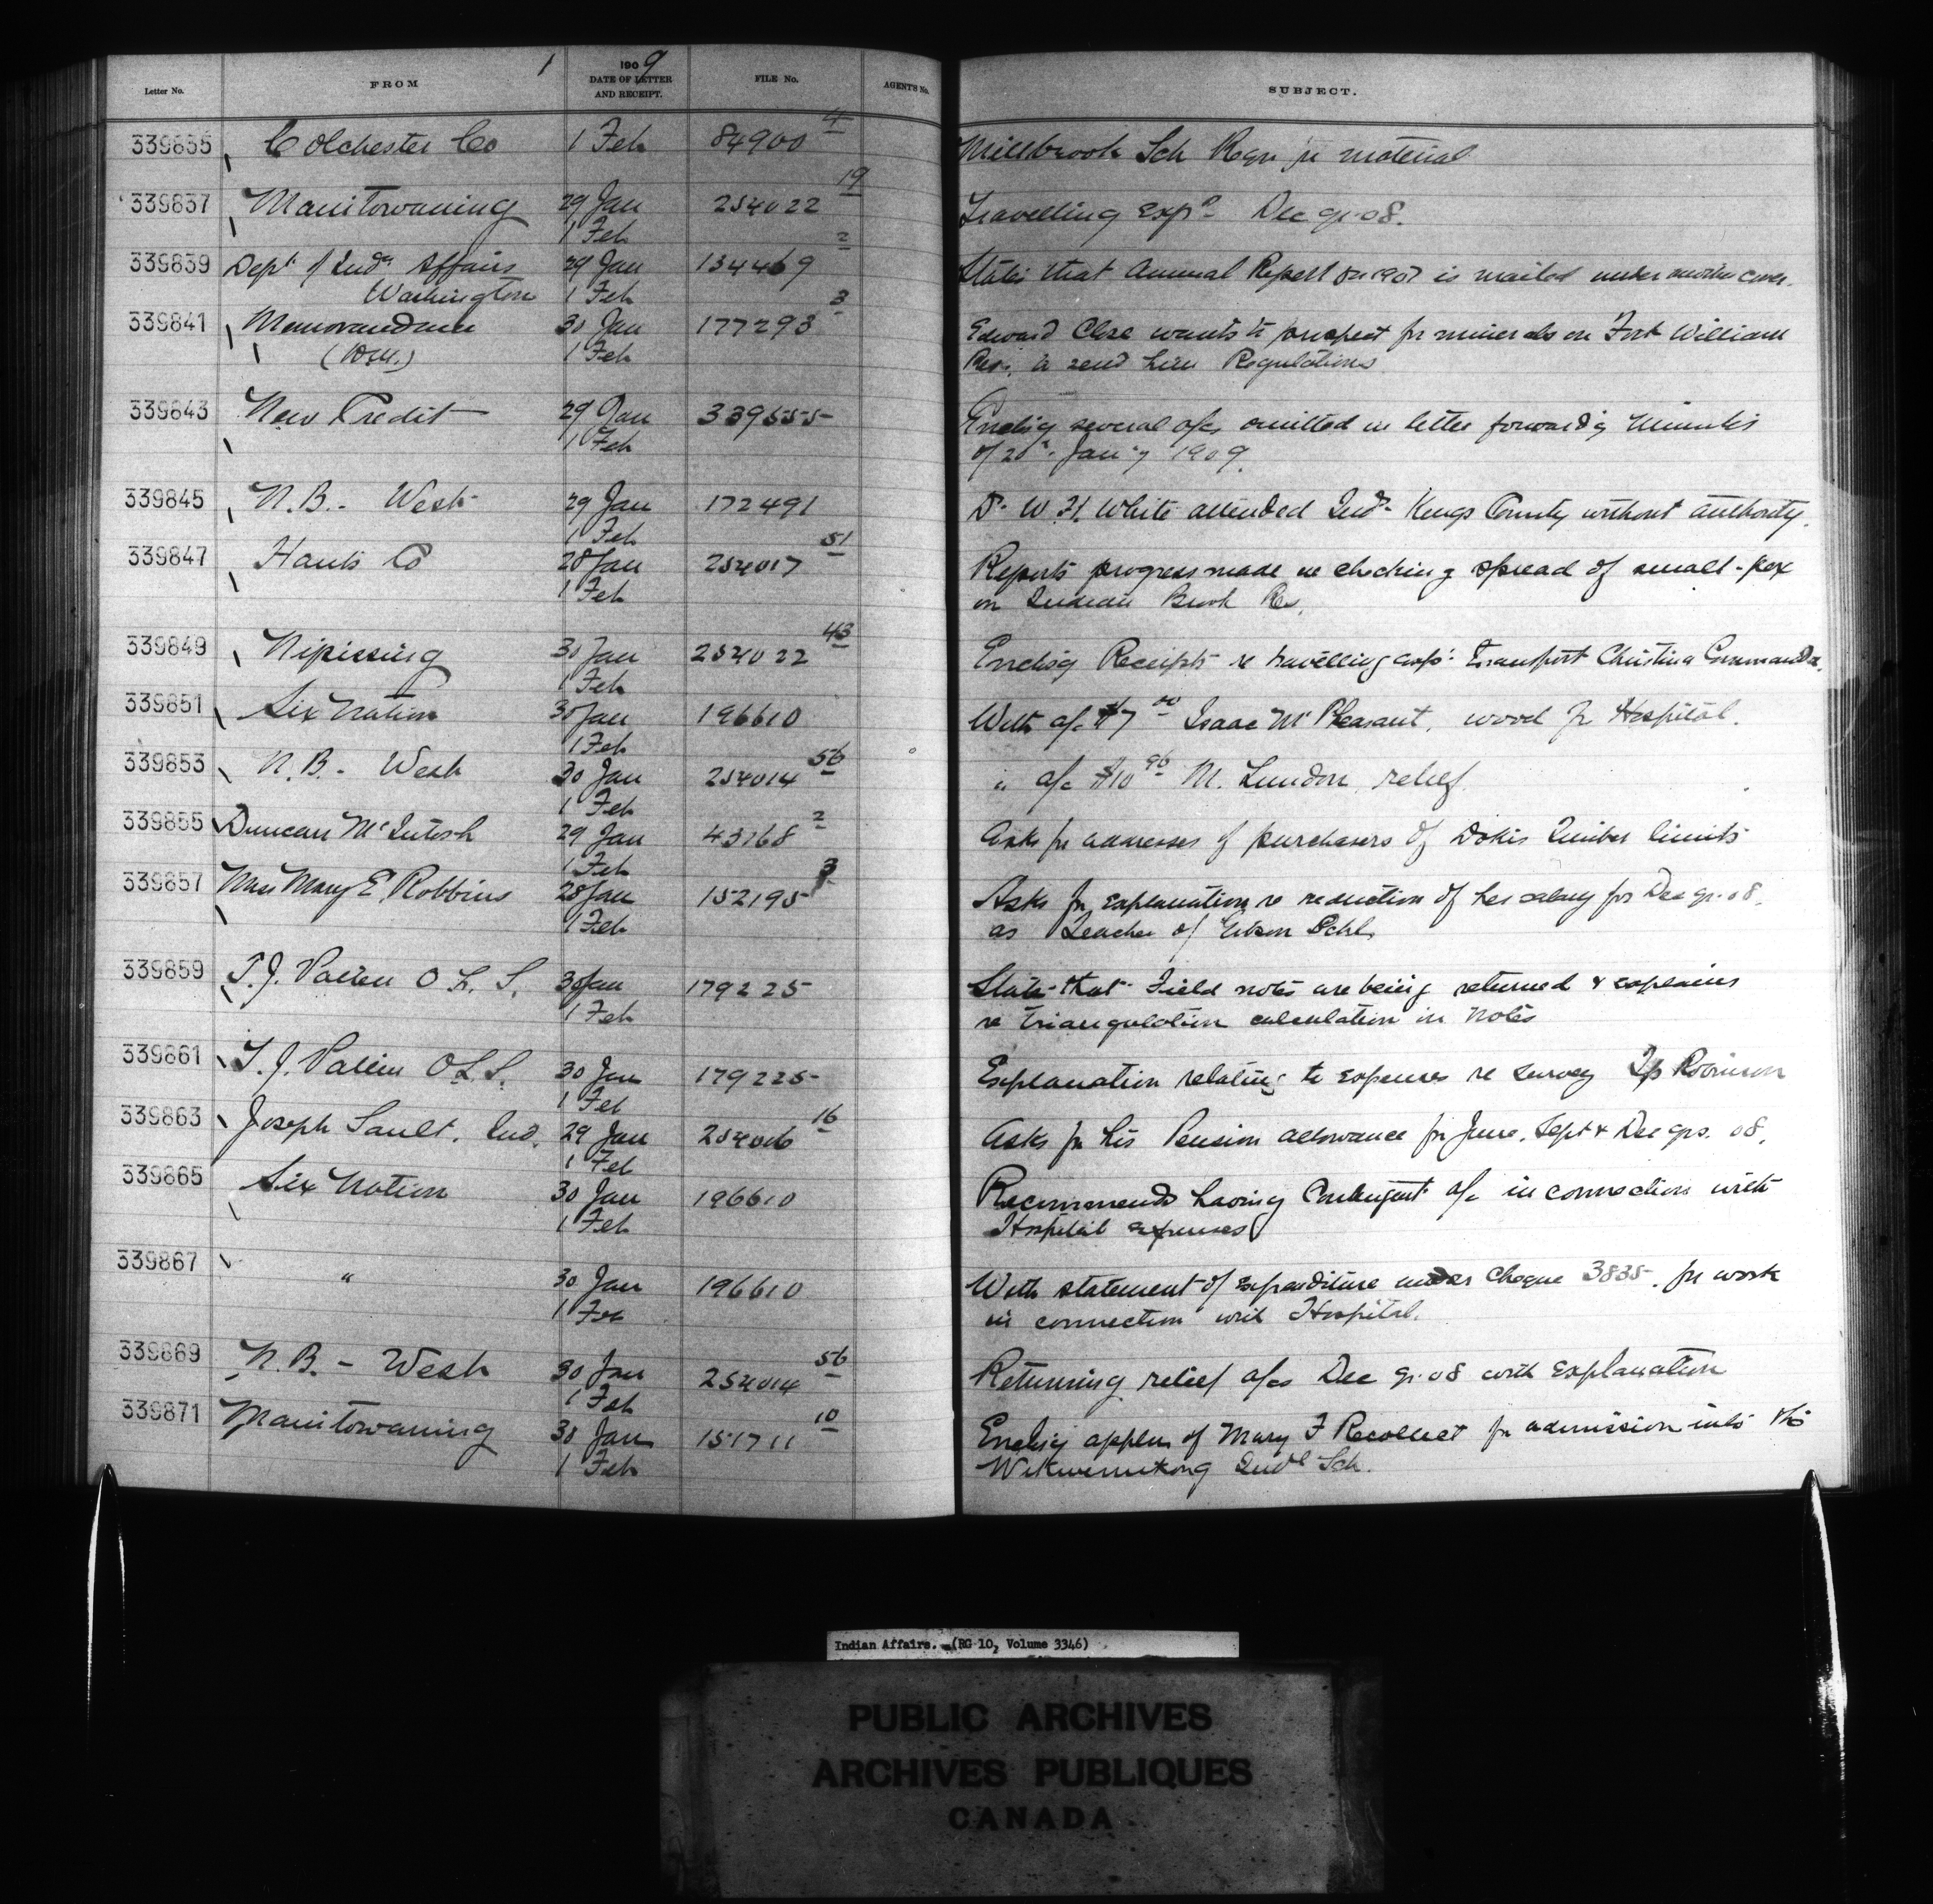 1
Letter No. FROM 1909 DATE OF LETTER AND RECEIPT. FILE No. AGENT'S No. SUBJECT.
339835 Colchester Co 1 Feb 84900 4 Millbrook Sch Reqn for material
339837 Manitowaning 29 Jan 254022 19 Travelling exps Dec qr 08.
1 Feb
339839 Dept of Inds Affairs 29 Jan 134469 2 States that Annual Report for 1907 is mailed under another cover.
Washington 1 Feb
339841 Memorandum 30 Jan 177293 3 Edward Close wants to prospect for minerals on Fort William
1 Feb Res. to send him Regulations
339843 New Credit 29 Jan 339555 Enclsg several a/cs omitted in letter forwardg Minutes
1 Feb of Jany 1909.
339845 N.B. - West 29 Jan 172491 Dr. W. H. White attended Inds Kings County without authority.
1 Feb
339847 Hants Co 28 Jan 254017 51 Reports progress made re checking spread of small-pox
1 Feb on Indian Brook Res.
339849 Nipissing 30 Jan 254022 43 Enclsg Receipts re travelling exps. Transport Christina Commanda.
1 Feb
339851 Six Nation 30 Jan 196610 With a/c $7 00 Isaac Mt Pleasant, wood for Hospital.
1 Feb
339853 N.B. - West 30 Jan 254014 56 " a/c $10 96 M. Lundon, relief
1 Feb
339855 Duncan McIntosh 29 Jan 43168 2 Asks for addresses of purchasers of Dokis Timber limits
1 Feb
339857 Miss Mary E Robbins 28 Jan 152195 3 Asks for explanation re reduction of her salary for Dec qr. 08.
1 Feb as Teacher of Schl.
339859 T. J. Patten O L S. 30 Jan 179225 States that Field notes are being returned & explains
1 Feb re triangulation calculation in notes
339861 T. J. Patten O L S. 30 Jan 179225 Explanation relating to expenses re survey Tp Robinson
1 Feb
339863 Joseph Sault. Ind. 29 Jan 254006 16 Asks for his Pension allowance for June, Sept & Dec qrs. 08.
1 Feb
339865 Six Nation 30 Jan 196610 Recommends having Contingent a/c in connection with
1 Feb Hospital expenses
339867 " 30 Jan 196610 With statement of expenditure under Cheque 3835. for work
1 Feb in connection with Hospital.
339869 N. B. - West 30 Jan 254014 56 Returning relief a/cs Dec qr. 08 with explanation
1 Feb
339871 Manitowaning 30 Jan 151711 10 Enclsg appln of Mary F Recollect for admission into the
1 Feb Wikwemikong Indl Sch.
Indian Affairs. (RG 10, Volume 3346)
PUBLIC ARCHIVES
ARCHIVES PUBLIQUES
CANADA